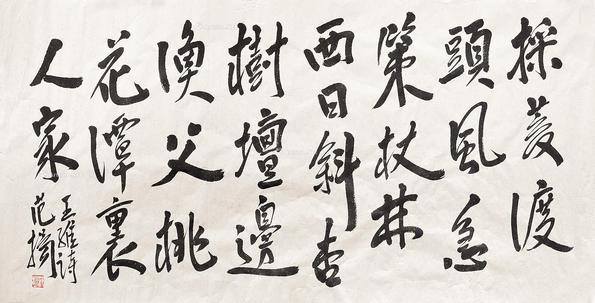 採菱渡
頭風急
策杖林
西日斜杏
樹壇邊
漁父桃
花潭裏
人家
王維詩
范